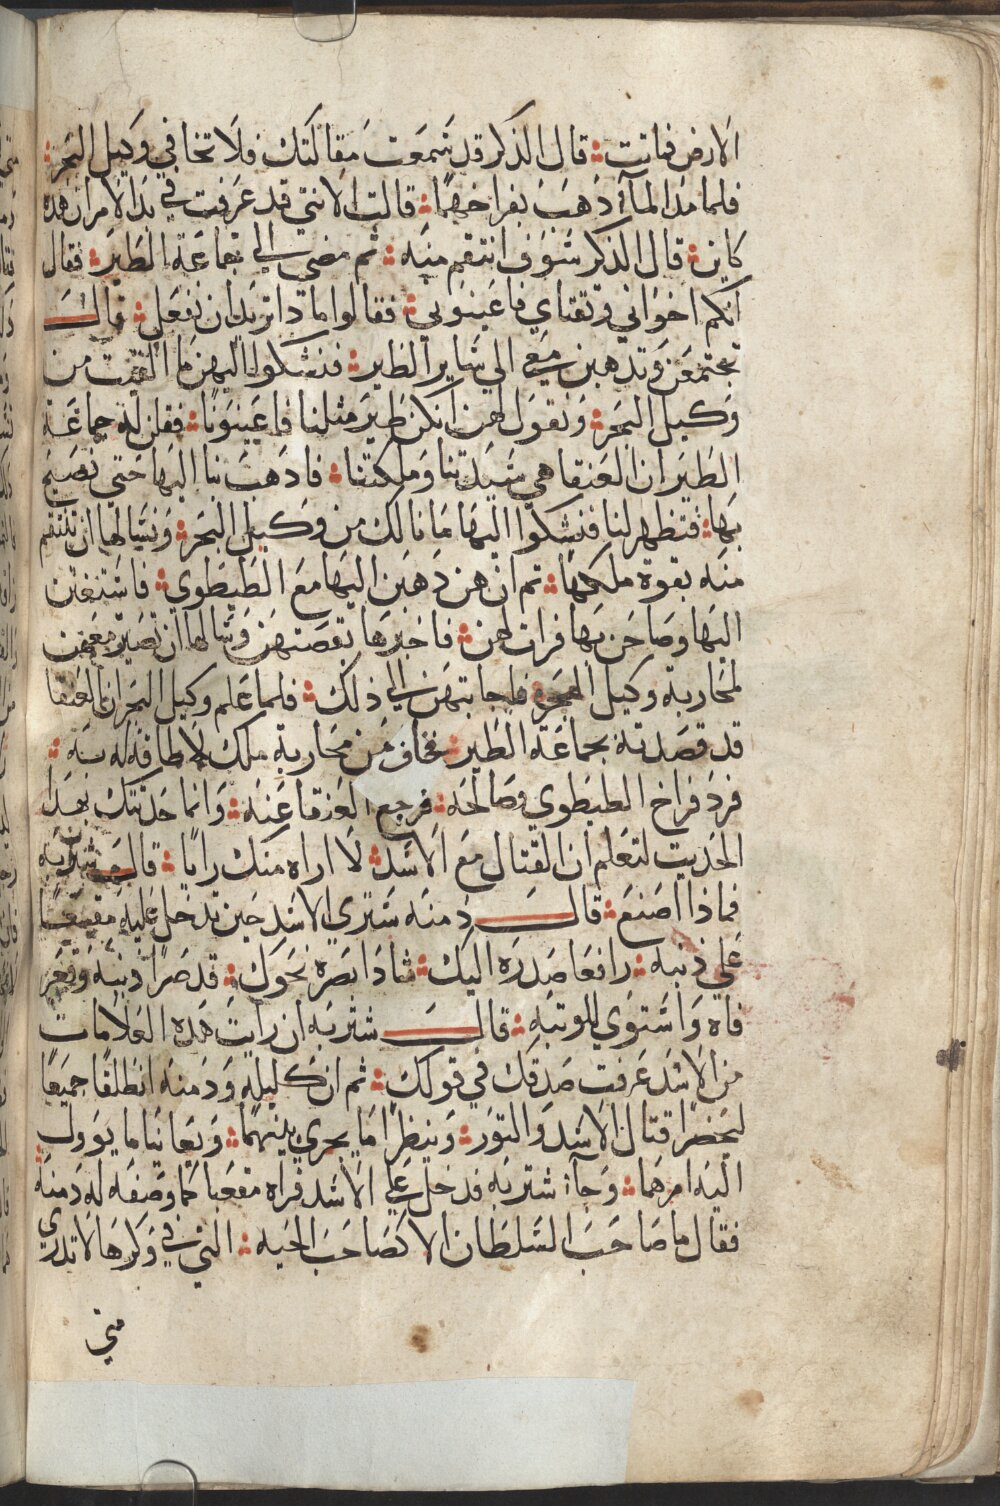 الارض فماتت ؞ قال الذكر قد سمعت مقالتك فلا تخافي وكيل البحر ؞
فلما مد المآء ذهب بفراخهما ؞ قالت الانثي قد عرفت في بد الامر ان هذه
كاين ؞ قال الذكر سوف انتقم منه ؞ ثم مضي الي جماعة الطير ؞ فقال
انكم اخواني وتقتاي فاعينوني ؞ فقالوا ماذا تريد ان نفعل ؞ قال
تجتمعن وتذهبن معي الي ساير الطير ؞ فنشكوا اليهن ما القيت من
وكيل البحر ؞ ونقول لهن انكن طير مثلنا فاعينونا ؞ فقلن له جماعة
الطير ان العنقا هي سيدتنا وملكتنا ؞ فاذهب بنا اليها حتي نصيح
بها ؞ فتظهر لنا فنشكوا اليها ما نالك من وكيل البحر ؞ ونسالها ان تنتقم
منه بقوة ملكها ؞ ثم ان هن ذهبن اليها مع الطيطوي ؞ فاستغثن
اليها وصاحن بها فرات لهن ؞ فاخبرها بقصتهن وسالها ان تصير معهن
لمحاربة وكيل البحر ؞ فاجابتهن الي ذلك ؞ فلما علم وكيل البحر ان العنقا
قد قصدته بجماعة الطير ؞ فخاف من محاربة ملك لا طاقة له به ؞
فرد فراخ الطيطوي وصالحه ؞ فرجع العنقا عنه ؞ وانما حدثتك بهذا
الحديث لتعلم ان القتال مع الاسد ؞ لا اراه منك رايا ؞ قال شتربه
فماذا اصنع ؞ قال دمنه ستري الاسد حين تدخل عليه مقعيا
علي ذنبه ؞ رافعا صدره اليك ؞ مادا بصره نحوك ؞ قد صر اذنيه وفغر
فاه واستوي للوثبه ؞ قال شتربه ان رايت هذه العلامات
من الاسد عرفت صدقك في قولك ؞ ثم ان كليله ودمنه انطلقا جميعا
ليحضرا قتال الاسد والثور ؞ وينظرا ما يجري بينهما ؞ ويعاينا ما يوول
اليه امرهما ؞ وجآء شتربه فدخل علي الاسد فراه مقعيا كما وصفه له دمنه
فقال ما صاحب السلطان الا كصاحب الحيه ؞ التي في وكرها لا تدري
متي